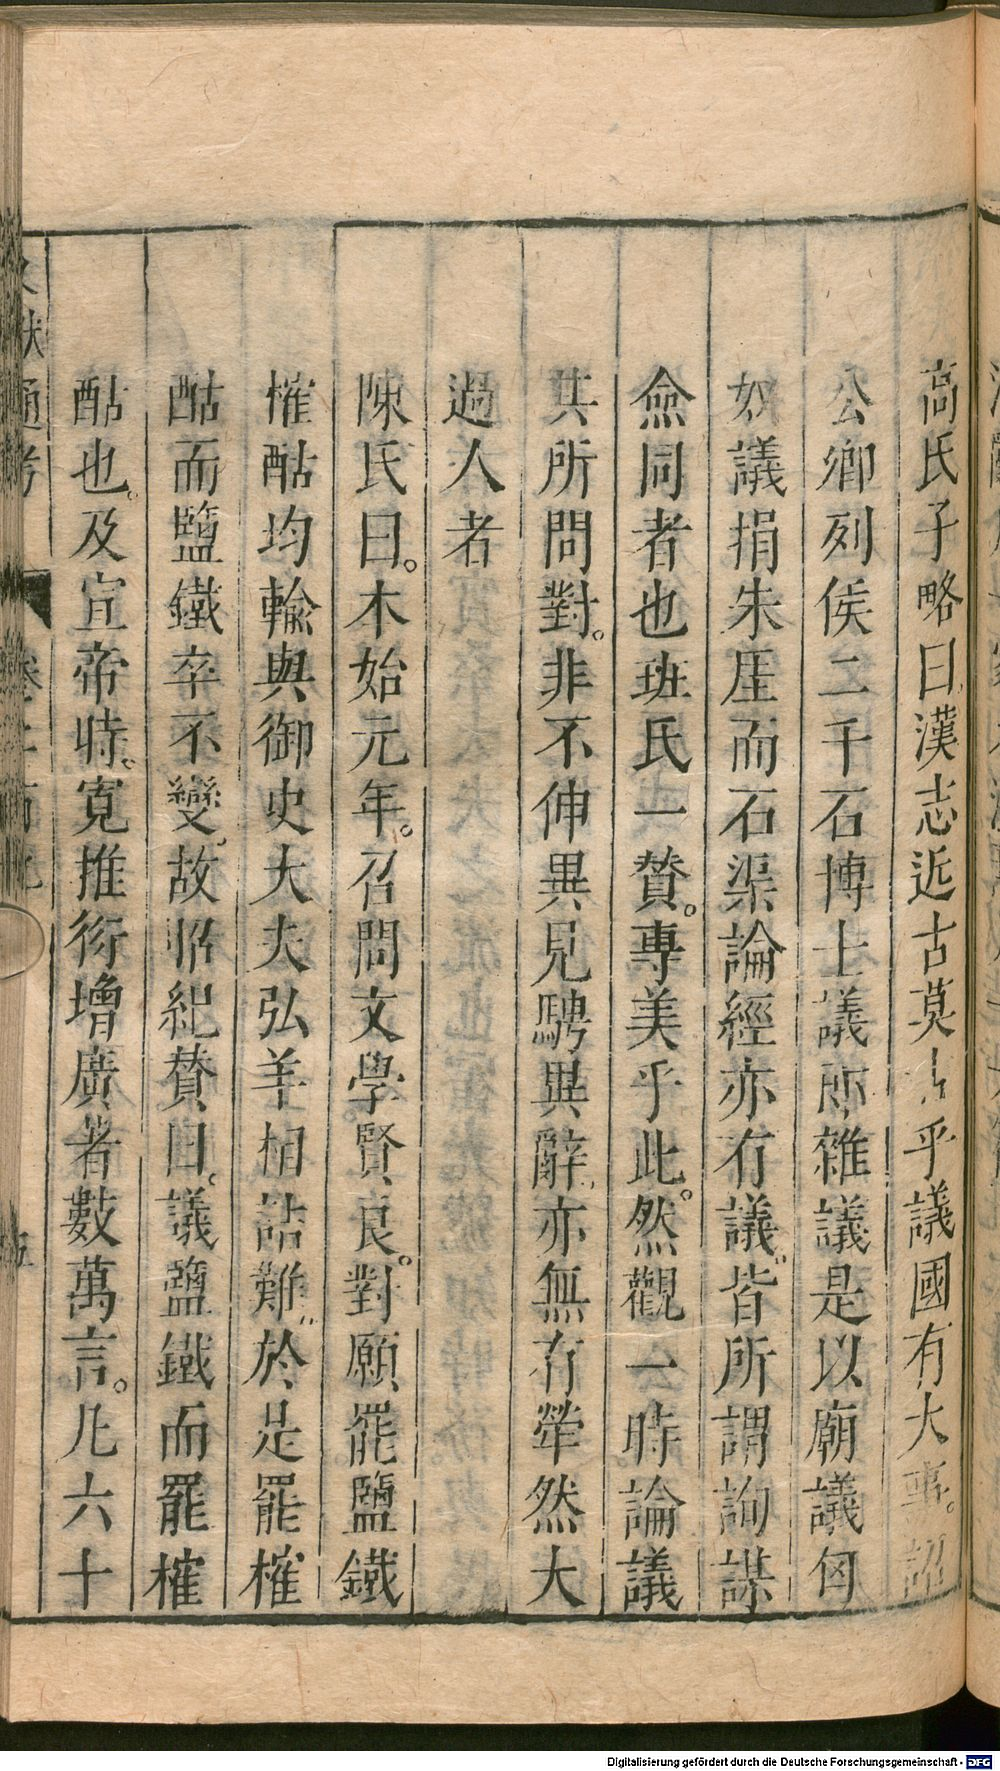 高氏子略曰漢志近古莫古乎議國有大事。詔
公卿列侯二千石博士議郎雜議是以廟議匈
奴議捐朱厓而石渠論經亦有議皆所謂詢謀
僉同者也班氏一贊。專美乎此。然觀一時論議
其所問對。非不伸異見騁異辭亦無有犖然大
過人者
陳氏曰。木始元年。召問文學賢良。對願罷鹽鐵
榷酤均輸與御史大夫弘羊相詰難於是罷榷
酤而鹽鐵卒不變。故昭紀贊曰。議鹽鐵而罷榷
酤也。及宣帝時。寬推衍增廣著數萬言。凡六十
文獻通考
Digitalisierung gefördert durch die Deutsche Forschungsgemeinschaft - DFG